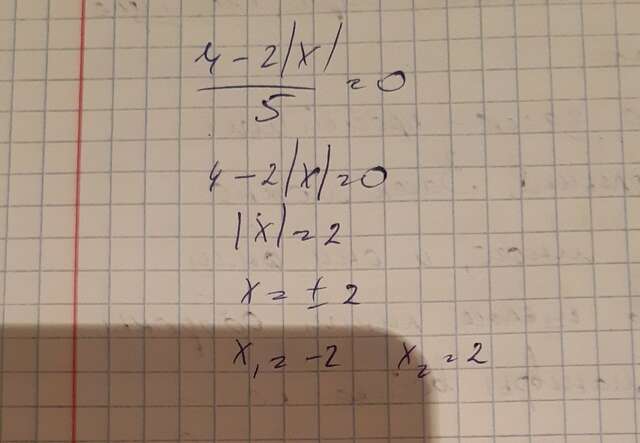 4 - 2|x|
5
= 0
4 - 2|x| = 0
|x| = 2
x = ± 2
x₁ = -2 x₂ = 2